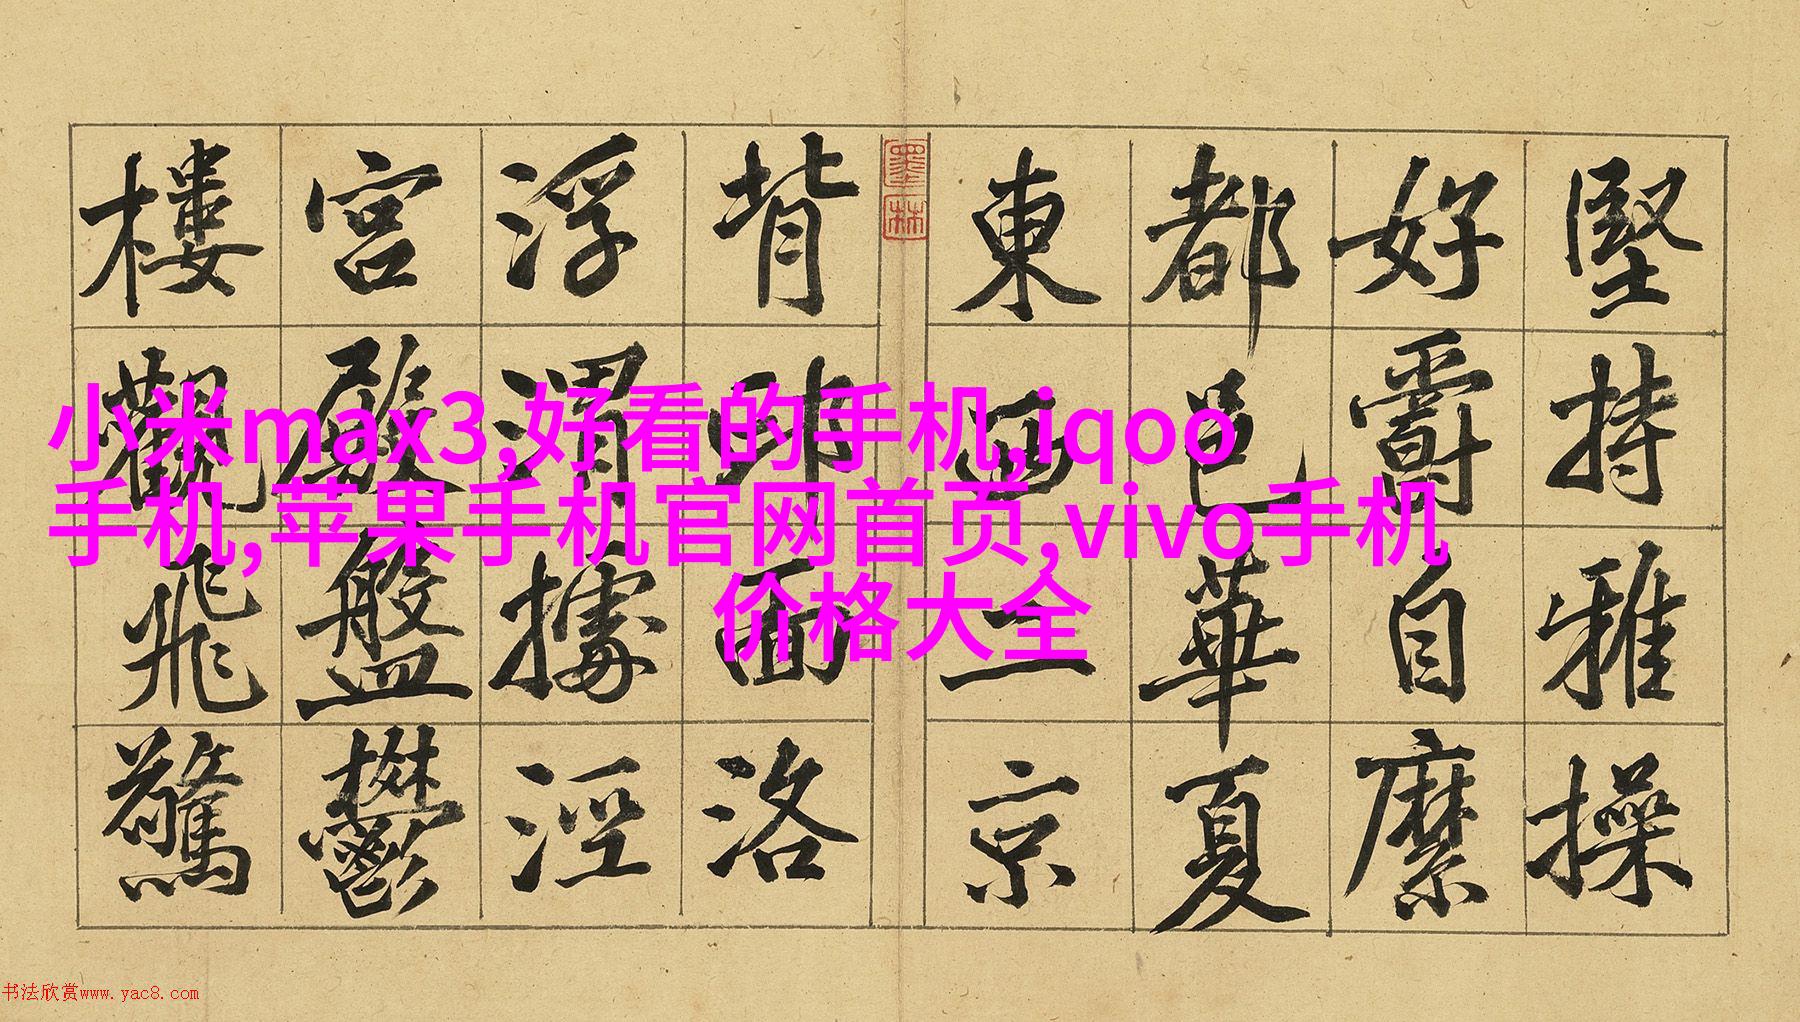 堅持雅操
好爵自縻
都邑華夏
東西二京
墨林
背邙面洛
浮渭據涇
宮殿盤鬱
樓觀飛驚
小米max3,好看的手机,iqoo
手机,苹果手机官网首页,vivo手机
价格大全
书法欣赏www.yac8.com